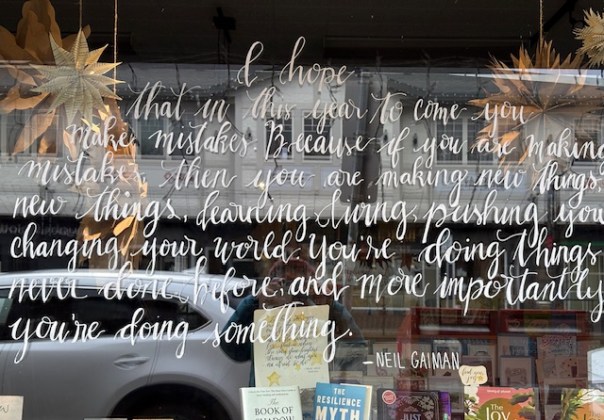 I hope
that in this year to come you
make mistakes. Because if you are making
mistakes, then you are making new things,
new things, learning, living, pushing you
changing your world. You're doing things
never done before, and more importantly
you're doing something.
-NEIL GAIMAN
THE BOOK OF
THE
RESILIENCE
MYTH
JUST
THE
JOY